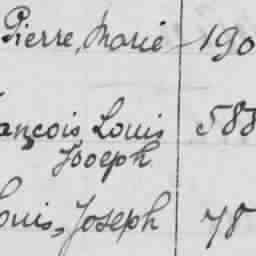 Pierre, Marie 190
ançois, Louis 588
Joseph
ouis, Joseph 78